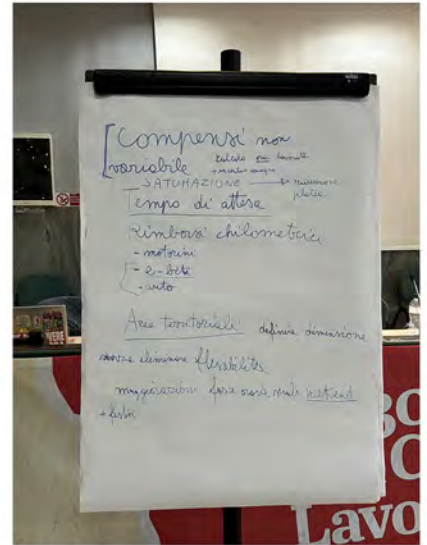 Compensi non
variabile
SATURAZIONE → riduzione
Tempo di attesa
Rimborsi chilometrici
- motorini
- e-bike
- auto
Aree territoriali definire dimensione
senza eliminare flessibilità
maggiorazioni fasce orarie, weekend
+ festivi
BO
Lavo